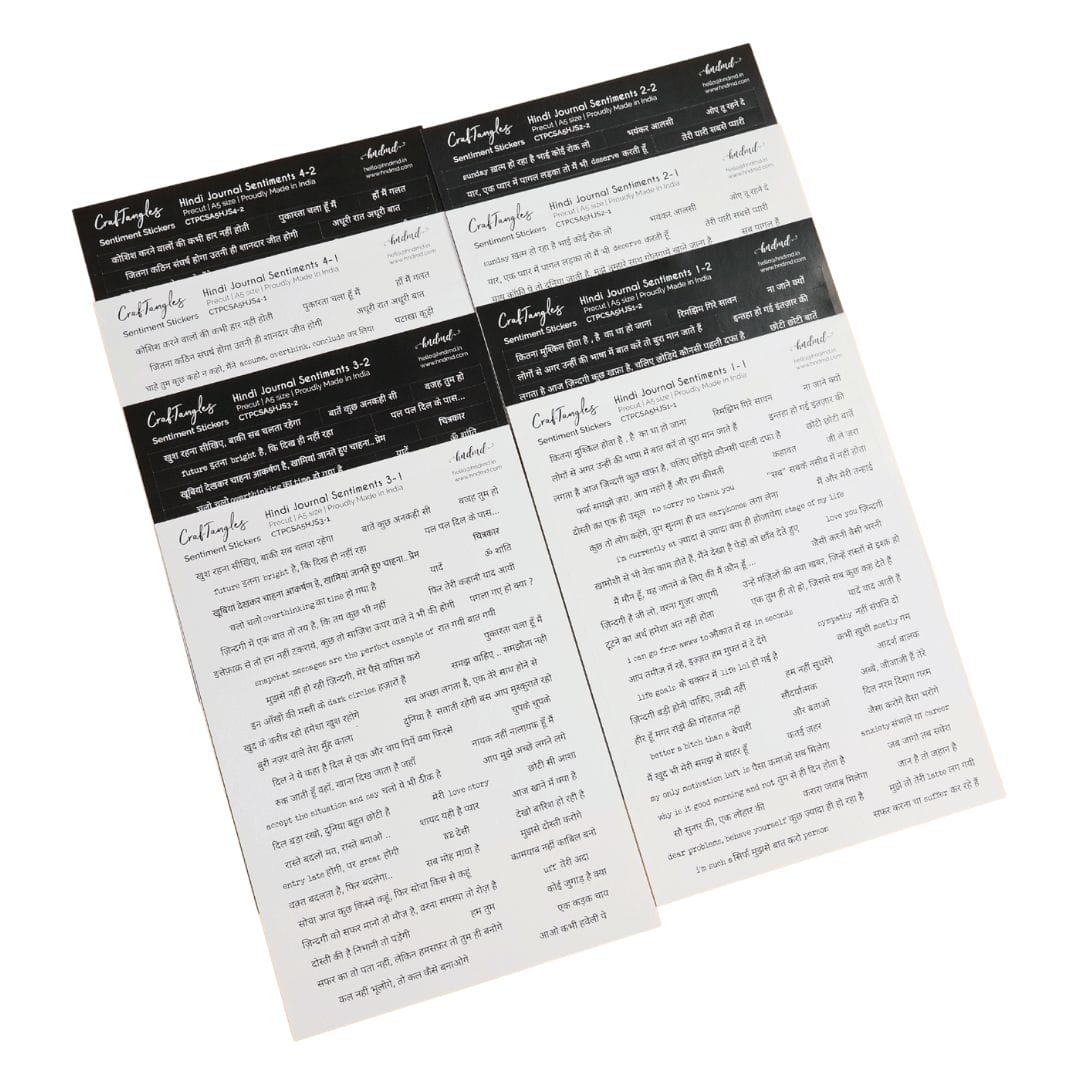 CrafTangles
Sentiment Stickers
Hindi Journal Sentiments 4-2
Precut | A5 size | Proudly Made in India
CTPCSA5HJS4-2
hndmd
hello@hndmd.in
www.hndmd.com
कोशिश करने वालों की कभी हार नहीं होती
पुकारता चला हूँ मैं
हाँ मैं गलत
जितना कठिन संघर्ष होगा उतनी ही शानदार जीत होगी
अधूरी रात अधूरी बात
CrafTangles
Sentiment Stickers
Hindi Journal Sentiments 4-1
Precut | A5 size | Proudly Made in India
CTPCSA5HJS4-1
hndmd
hello@hndmd.in
www.hndmd.com
कोशिश करने वालों की कभी हार नहीं होती
पुकारता चला हूँ मैं
हाँ मैं गलत
जितना कठिन संघर्ष होगा उतनी ही शानदार जीत होगी
अधूरी रात अधूरी बात
चाहे तुम कुछ कहो न कहो, मैंने assume, overthink, conclude कर लिया
पटाखा कुड़ी
CrafTangles
Sentiment Stickers
Hindi Journal Sentiments 3-2
Precut | A5 size | Proudly Made in India
CTPCSA5HJS3-2
hndmd
hello@hndmd.in
www.hndmd.com
खुश रहना सीखिए, बाकी सब चलता रहेगा
बातें कुछ अनकही सी
वजह तुम हो
future इतना bright है, कि दिख ही नहीं रहा
पल पल दिल के पास...
खूबियां देखकर चाहना आकर्षण है, खामियां जानते हुए चाहना..प्रेम
चित्रकार
चलो चलो overthinking का time हो गया है
यादें
ॐ शांति
CrafTangles
Sentiment Stickers
Hindi Journal Sentiments 3-1
Precut | A5 size | Proudly Made in India
CTPCSA5HJS3-1
hndmd
hello@hndmd.in
www.hndmd.com
खुश रहना सीखिए, बाकी सब चलता रहेगा
बातें कुछ अनकही सी
वजह तुम हो
future इतना bright है, कि दिख ही नहीं रहा
पल पल दिल के पास...
खूबियां देखकर चाहना आकर्षण है, खामियां जानते हुए चाहना..प्रेम
चित्रकार
चलो चलो overthinking का time हो गया है
यादें
ॐ शांति
ज़िन्दगी में एक बात तो तय है, कि तय कुछ भी नहीं
फिर तेरी कहानी याद आयी
इत्तेफ़ाक़ से तो हम नहीं टकराये, कुछ तो साज़िश ऊपर वाले ने भी की होगी
पगला गए हो क्या ?
snapchat messages are the perfect example of रात गयी बात गयी
मुझसे नहीं हो रही ज़िन्दगी, मेरे पैसे वापिस करो
पुकारता चला हूँ मैं
इन आँखों की मस्ती के dark circles हज़ारों हैं
समझ चाहिए .. समझौता नही
खुद के करीब रहो हमेशा खुश रहोगे
सब अच्छा लगता है, एक तेरे साथ होने से
बुरी नज़र वाले तेरा मुँह काला
दुनिया है सताती रहेगी बस आप मुस्कुराते रहो
दिल ने ये कहा है दिल से एक और चाय पियें क्या फिरसे
चुपके चुपके
रुक जाती हूँ वहाँ, खाना दिख जाता है जहाँ
नायक नहीं नालायक हूँ मैं
accept the situation and say चलो ये भी ठीक है
आप मुझे अच्छे लगने लगे
दिल बड़ा रखो, दुनिया बहुत छोटी है
मेरी love story
छोटी सी आशा
रास्ते बदलो मत, रास्ते बनाओ ..
शायद यही है प्यार
आज खाने में क्या है
entry late होगी, पर great होगी
देसी
देखो बारिश हो रही है
वक़्त बदलता है, फिर बदलेगा..
सब मोह माया है
मुझसे दोस्ती करोगे
सोचा आज कुछ किस्से कहूं, फिर सोचा किस से कहूं
कामयाब नहीं काबिल बनो
ज़िन्दगी को सफर मानो तो मौज है, वरना समस्या तो रोज़ है
uff तेरी अदा
दोस्ती की है निभानी तो पड़ेगी
हम तुम
कोई जुगाड़ है क्या
सफर का तो पता नहीं, लेकिन हमसफ़र तो तुम ही बनोगे
एक कड़क चाय
कल नहीं भूलोगे, तो कल कैसे बनाओगे
आओ कभी हवेली पे
CrafTangles
Sentiment Stickers
Hindi Journal Sentiments 2-2
Precut | A5 size | Proudly Made in India
CTPCSA5HJS2-2
hndmd
hello@hndmd.in
www.hndmd.com
sunday ख़त्म हो रहा है भाई कोई रोक लो
भयंकर आलसी
ओए तू रहने दे
यार, एक प्यार में पागल लड़का तो मैं भी deserve करती हूँ
तेरी यारी सबसे प्यारी
CrafTangles
Sentiment Stickers
Hindi Journal Sentiments 2-1
Precut | A5 size | Proudly Made in India
CTPCSA5HJS2-1
hndmd
hello@hndmd.in
www.hndmd.com
sunday ख़त्म हो रहा है भाई कोई रोक लो
भयंकर आलसी
ओए तू रहने दे
यार, एक प्यार में पागल लड़का तो मैं भी deserve करती हूँ
तेरी यारी सबसे प्यारी
सब पागल है
CrafTangles
Sentiment Stickers
Hindi Journal Sentiments 1-2
Precut | A5 size | Proudly Made in India
CTPCSA5HJS1-2
hndmd
hello@hndmd.in
www.hndmd.com
कितना मुश्किल होता है , है का था हो जाना
रिमझिम गिरे सावन
ना जाने क्यों
लोगों से अगर उन्हीं की भाषा में बात करें तो बुरा मान जाते हैं
इन्तहा हो गई इंतज़ार की
लगता है आज ज़िन्दगी कुछ खफ़ा है, चलिए छोड़िये कौनसी पहली दफा है
छोटी छोटी बातें
CrafTangles
Sentiment Stickers
Hindi Journal Sentiments 1-1
Precut | A5 size | Proudly Made in India
CTPCSA5HJS1-1
hndmd
hello@hndmd.in
www.hndmd.com
कितना मुश्किल होता है , है का था हो जाना
रिमझिम गिरे सावन
ना जाने क्यों
लोगों से अगर उन्हीं की भाषा में बात करें तो बुरा मान जाते हैं
इन्तहा हो गई इंतज़ार की
लगता है आज ज़िन्दगी कुछ खफ़ा है, चलिए छोड़िये कौनसी पहली दफा है
छोटी छोटी बातें
फर्क समझो ज़रा, आप महंगे हैं और हम कीमती
कहावत
जी ले ज़रा
दोस्ती का एक ही उसूल no sorry no thank you
"सब्र" सबके नसीब में नहीं होता
कुछ तो लोग कहेंगे, तुम सुनना ही मत earphones लगा लेना
मैं और मेरी तन्हाई
i'm currently at ज़्यादा से ज़्यादा क्या ही होजायेगा stage of my life
खामोशी से भी नेक काम होते हैं, मैंने देखा है पेड़ों को छाँव देते हुए
love you ज़िन्दगी
मैं मौन हूँ, यह जानने के लिए की मैं कौन हूँ ...
जैसी करनी वैसी भरनी
ज़िन्दगी है जी लो, वरना गुज़र जाएगी
उन्हें मंज़िलों की क्या खबर, जिन्हें रास्तों से इश्क़ हो
टूटने का अर्थ हमेशा अंत नहीं होता
एक तुम ही तो हो, जिससे सब कुछ कह देते हैं
i can go from awww to औकात में रह in seconds
यादें याद आती है
आप तमीज़ में रहें, इज़्ज़त हम मुफ्त में दे देंगे
sympathy नहीं संपत्ति दो
life goals के चक्कर में life lol हो गई है
कभी खुशी mostly गम
ज़िन्दगी बड़ी होनी चाहिए, लम्बी नहीं
हम नहीं सुधरेंगे
आदर्श बालक
हीर हूँ मगर रांझे की मोहताज नहीं
सौंदर्यात्मक
अब्बे, जीजाजी हैं तेरे
better a bitch than a बेचारी
और बताओ
दिल नरम दिमाग गरम
मैं खुद भी मेरी समझ से बाहर हूँ
कतई ज़हर
जैसा करोगे वैसा भरोगे
my only motivation left is पैसा कमाओ सब मिलेगा
anxiety संभाले या career
why is it good morning and not तुम से ही दिन होता है
जब जागो तब सवेरा
सौ सुनार की, एक लोहार की
करारा जवाब मिलेगा
जान है तो जहान है
dear problems, behave yourself कुछ ज़्यादा ही हो रहा है
मुझे तो तेरी latte लग गयी
i'm such a सिर्फ मुझसे बात करो person
सफर करना था suffer कर रहे हैं